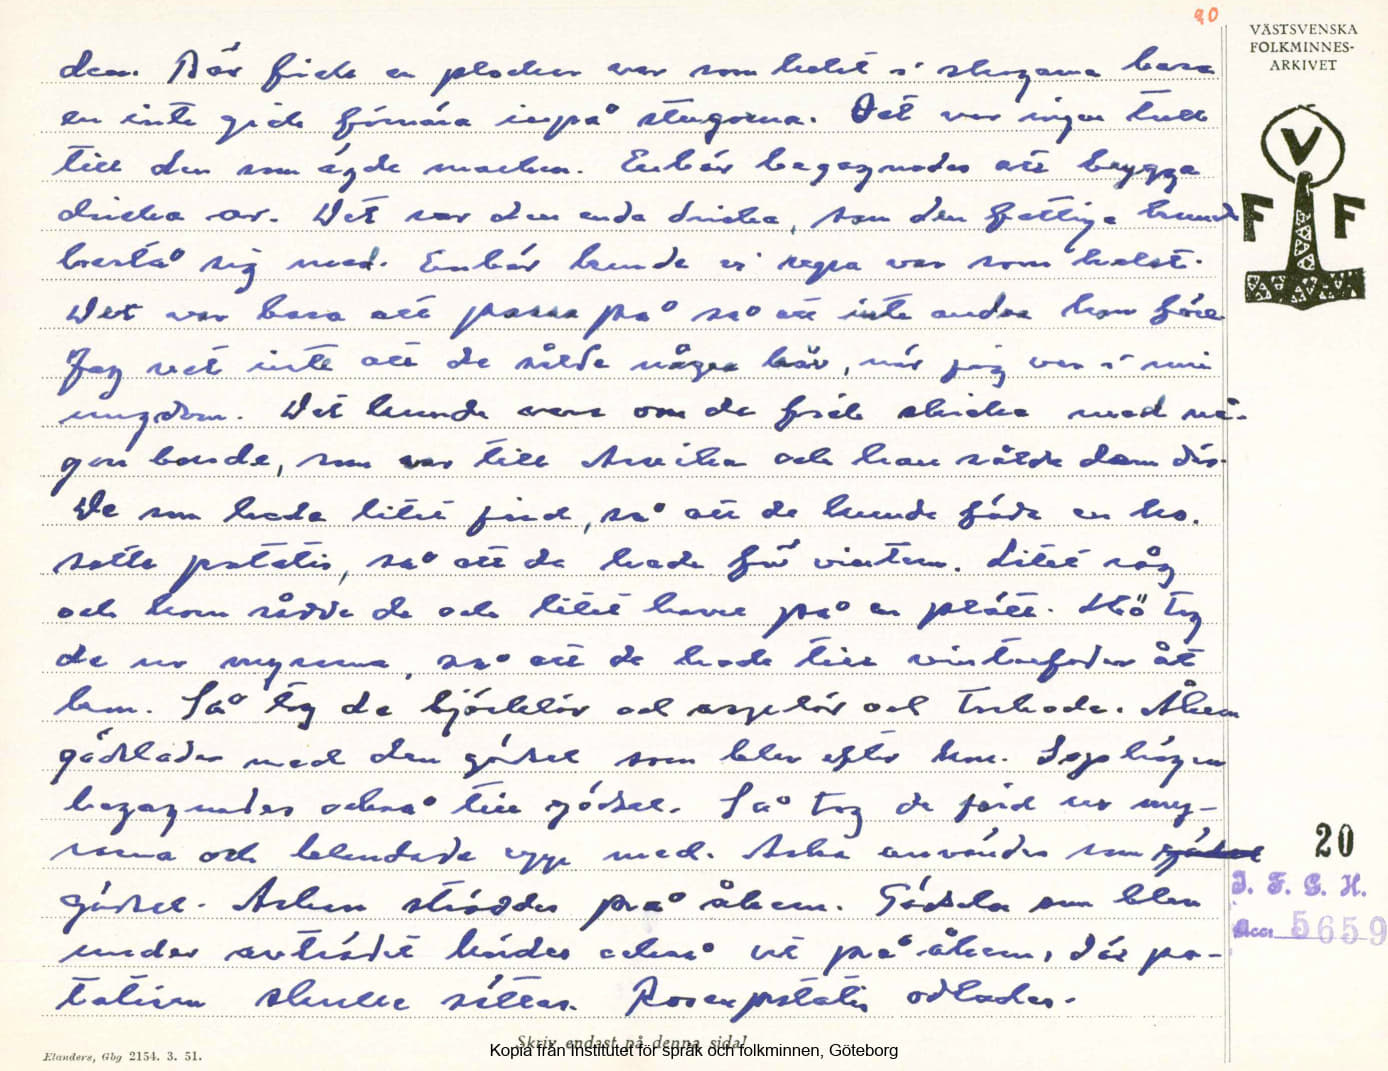 20
VÄSTSVENSKA
FOLKMINNES-
ARKIVET
V
F F
den. Där fick en plocka var som helst i skogarna bara
en inte gick för nära inpå stugorna. Det var ingen tull
till den som ägde marken. Enbär begagnades att brygga
dricka av. Det var den enda dricka, som den fattige kunde
bestå sig med. Enbär kunde vi repa var som helst.
Det var bara att passa på så att inte andra kom före
Jag vet inte att de sålde några bär, när jag var i min
ungdom. Det kunde vara om de fick skicka med nå-
gon bonde, som var till Arvika och han sålde dem där.
De som hade litet jord, så att de kunde föda en ko.
satte potatis, så att de hade för vintern. Litet råg
och korn sådde de och litet havre på en plätt. Hö tog
de ur myrarna, så att de hade till vinterfoder åt
kon. Så tog de björklöv och asplöv och torkade. Åkern
gödslades med den gödsel som blev efter kon. Sophögen
begagnades också till gödsel. Så tog de jord ur my-
rarna och blandade upp med. Aska användes som
gödsel. Askan ströddes på åkern. Gödseln som blev
under avträdet kördes också ut på åkern, där po-
tatisen skulle sättas. Rosenpotatis odlades.
20
I. F. G. H.
Acc. 5659
Skriv endast på denna sida!
Elanders, Gbg 2154. 3. 51.
Kopia från Institutet för språk och folkminnen, Göteborg